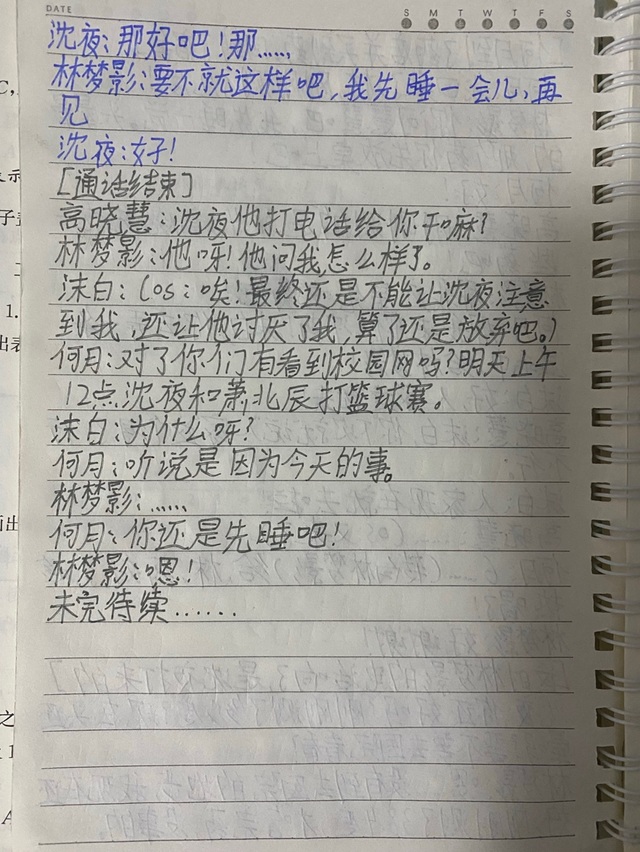 DATE
S M T W T F S
沈夜:那好吧!那……
林梦影:要不就这样吧,我先睡一会儿,再
见
沈夜:好!
[通话结束]
高晓慧:沈夜他打电话给你干嘛?
林梦影:他呀!他问我怎么样了。
沫白:(os:唉!最终还是不能让沈夜注意
到我,还让他讨厌了我,算了还是放弃吧。)
何月:对了你们有看到校园网吗?明天上午
12点沈夜和萧北辰打篮球赛。
沫白:为什么呀?
何月:听说是因为今天的事。
林梦影:……
何月:你还是先睡吧!
林梦影:嗯!
未完待续……